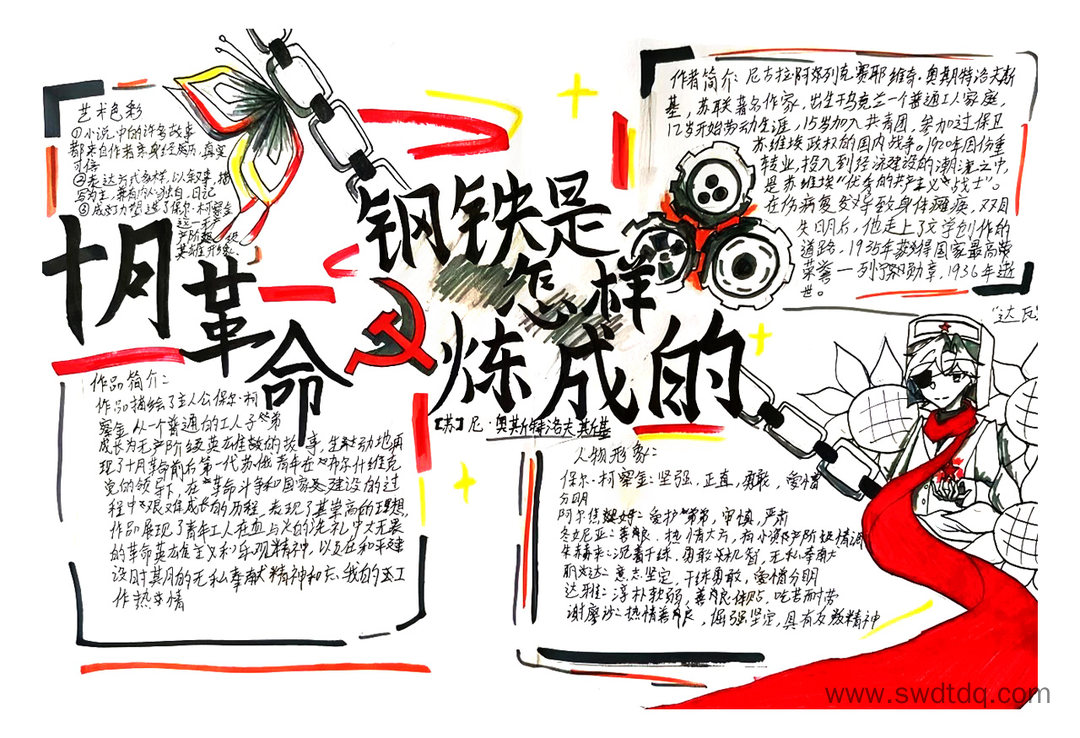 艺术色彩
①小说中的许多故事
都来自作者亲身经历,真实
可信
②表达方式多样,以叙事、描
写为主,兼有内心独白,日记
③成功塑造了保尔·柯察金
这一
产阶
英雄
十月
革
命
钢铁是
怎样
炼成的
[苏]尼·奥斯特洛夫斯基
作者简介:尼古拉·阿烈克塞耶维奇·奥斯特洛夫斯
基,苏联著名作家,出生于乌克兰一个普通工人家庭,
12岁开始劳动生涯,15岁加入共青团,参加过保卫
苏维埃政权的国内战争。1920年因伤重
转业,投入到经济建设的潮流之中,
是苏维埃“优秀的共产主义战士”。
在伤病复发导致身体瘫痪,双目
失明后,他走上了文学创作的
道路,1935年获得国家最高荣
荣誉一列宁勋章,1936年逝
世。
作品简介:
作品描绘了主人公保尔·柯
察金从一个普通的工人子弟
成长为无产阶级英雄的故事,生动地再
现了十月革命前后第一代苏维青年在布尔什维克
党的领导下,在革命斗争和国家建设的过
程中艰难成长的历程,表现了其崇高的理想。
作品展现了青年工人在血与火的洗礼中大无畏
的革命英雄主义和乐观精神,以及在和平建
设时其月的无私奉献精神和忘我的工
作热情
人物形象:
保尔·柯察金:坚强、正直,勇敢,爱憎
分明
阿尔焦姆:爱护弟弟,审慎,严肃
冬妮亚:善良、热情大方,有小资产阶级情调
朱赫来:沉着干练、勇敢又机智,无私奉献
丽达:意志坚定,干练勇敢,爱憎分明
达雅:淳朴软弱,善良体贴,吃苦耐劳
谢廖沙:热情善良,倔强坚定,具有反叛精神
“达瓦
www.swdtdq.com